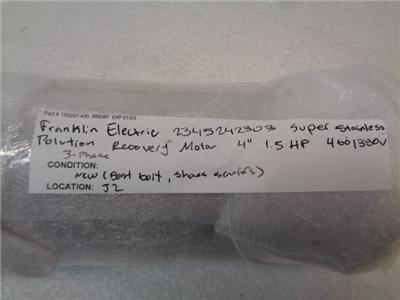 Part # 156297-435 RRDBF EXP 01/03
Franklin Electric 2345242303 Super Stainless
Polution Recovery Motor 4" 1.5 HP 460/380V
3-Phase
CONDITION:
New (Bent bolt, shows scuffs)
LOCATION: J2